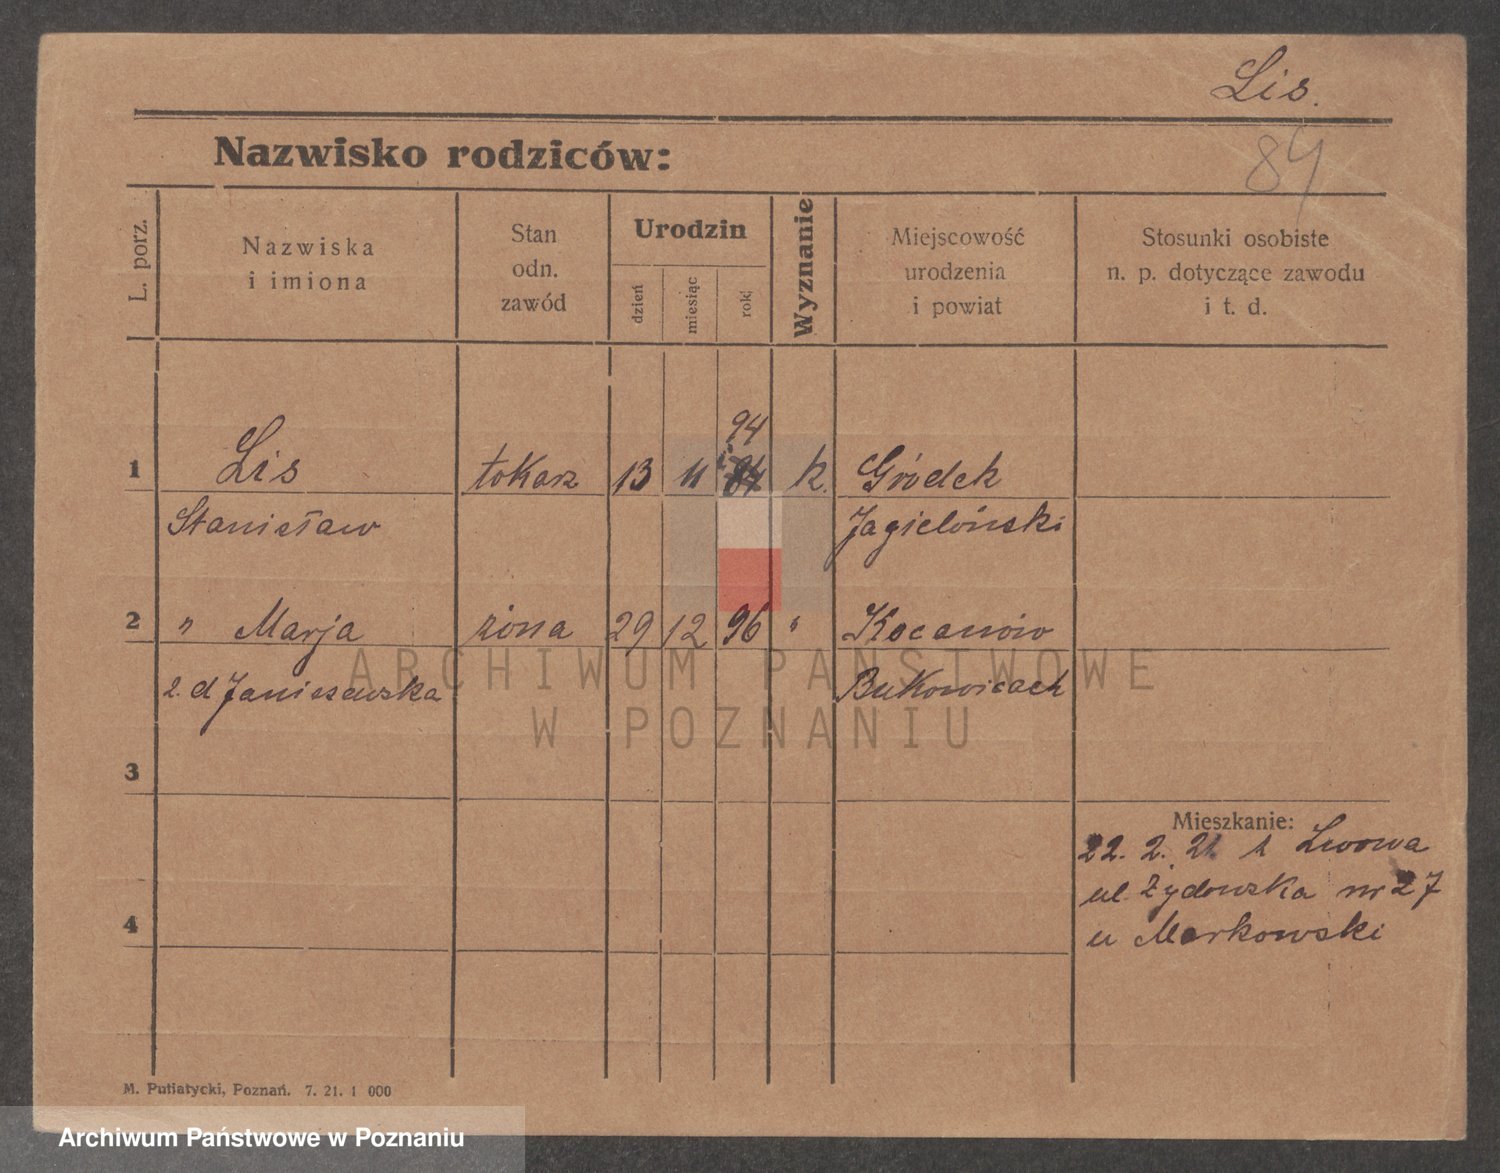 Lis.
84
Nazwisko rodziców:
L. porz.
Nazwiska
i imiona
Stan
odn.
zawód
Urodzin
dzień
miesiąc
rok
Wyznanie
Miejscowość
urodzenia
i powiat
Stosunki osobiste
n. p. dotyczące zawodu
i t. d.
94
1 Lis tokarz 13 11 84 k. Gródek
Stanisław Jagieloński
2 " Marja żona 29 12 96 " Kocanów
z. d Janiszewska Bukowicach
3
Mieszkanie:
22. 2. 21. z Lwowa
ul. Żydowska nr 27
4
u Markowski
M. Putiatycki, Poznań. 7. 21. 1 000
ARCHIWUM PAŃSTWOWE
W POZNANIU
Archiwum Państwowe w Poznaniu